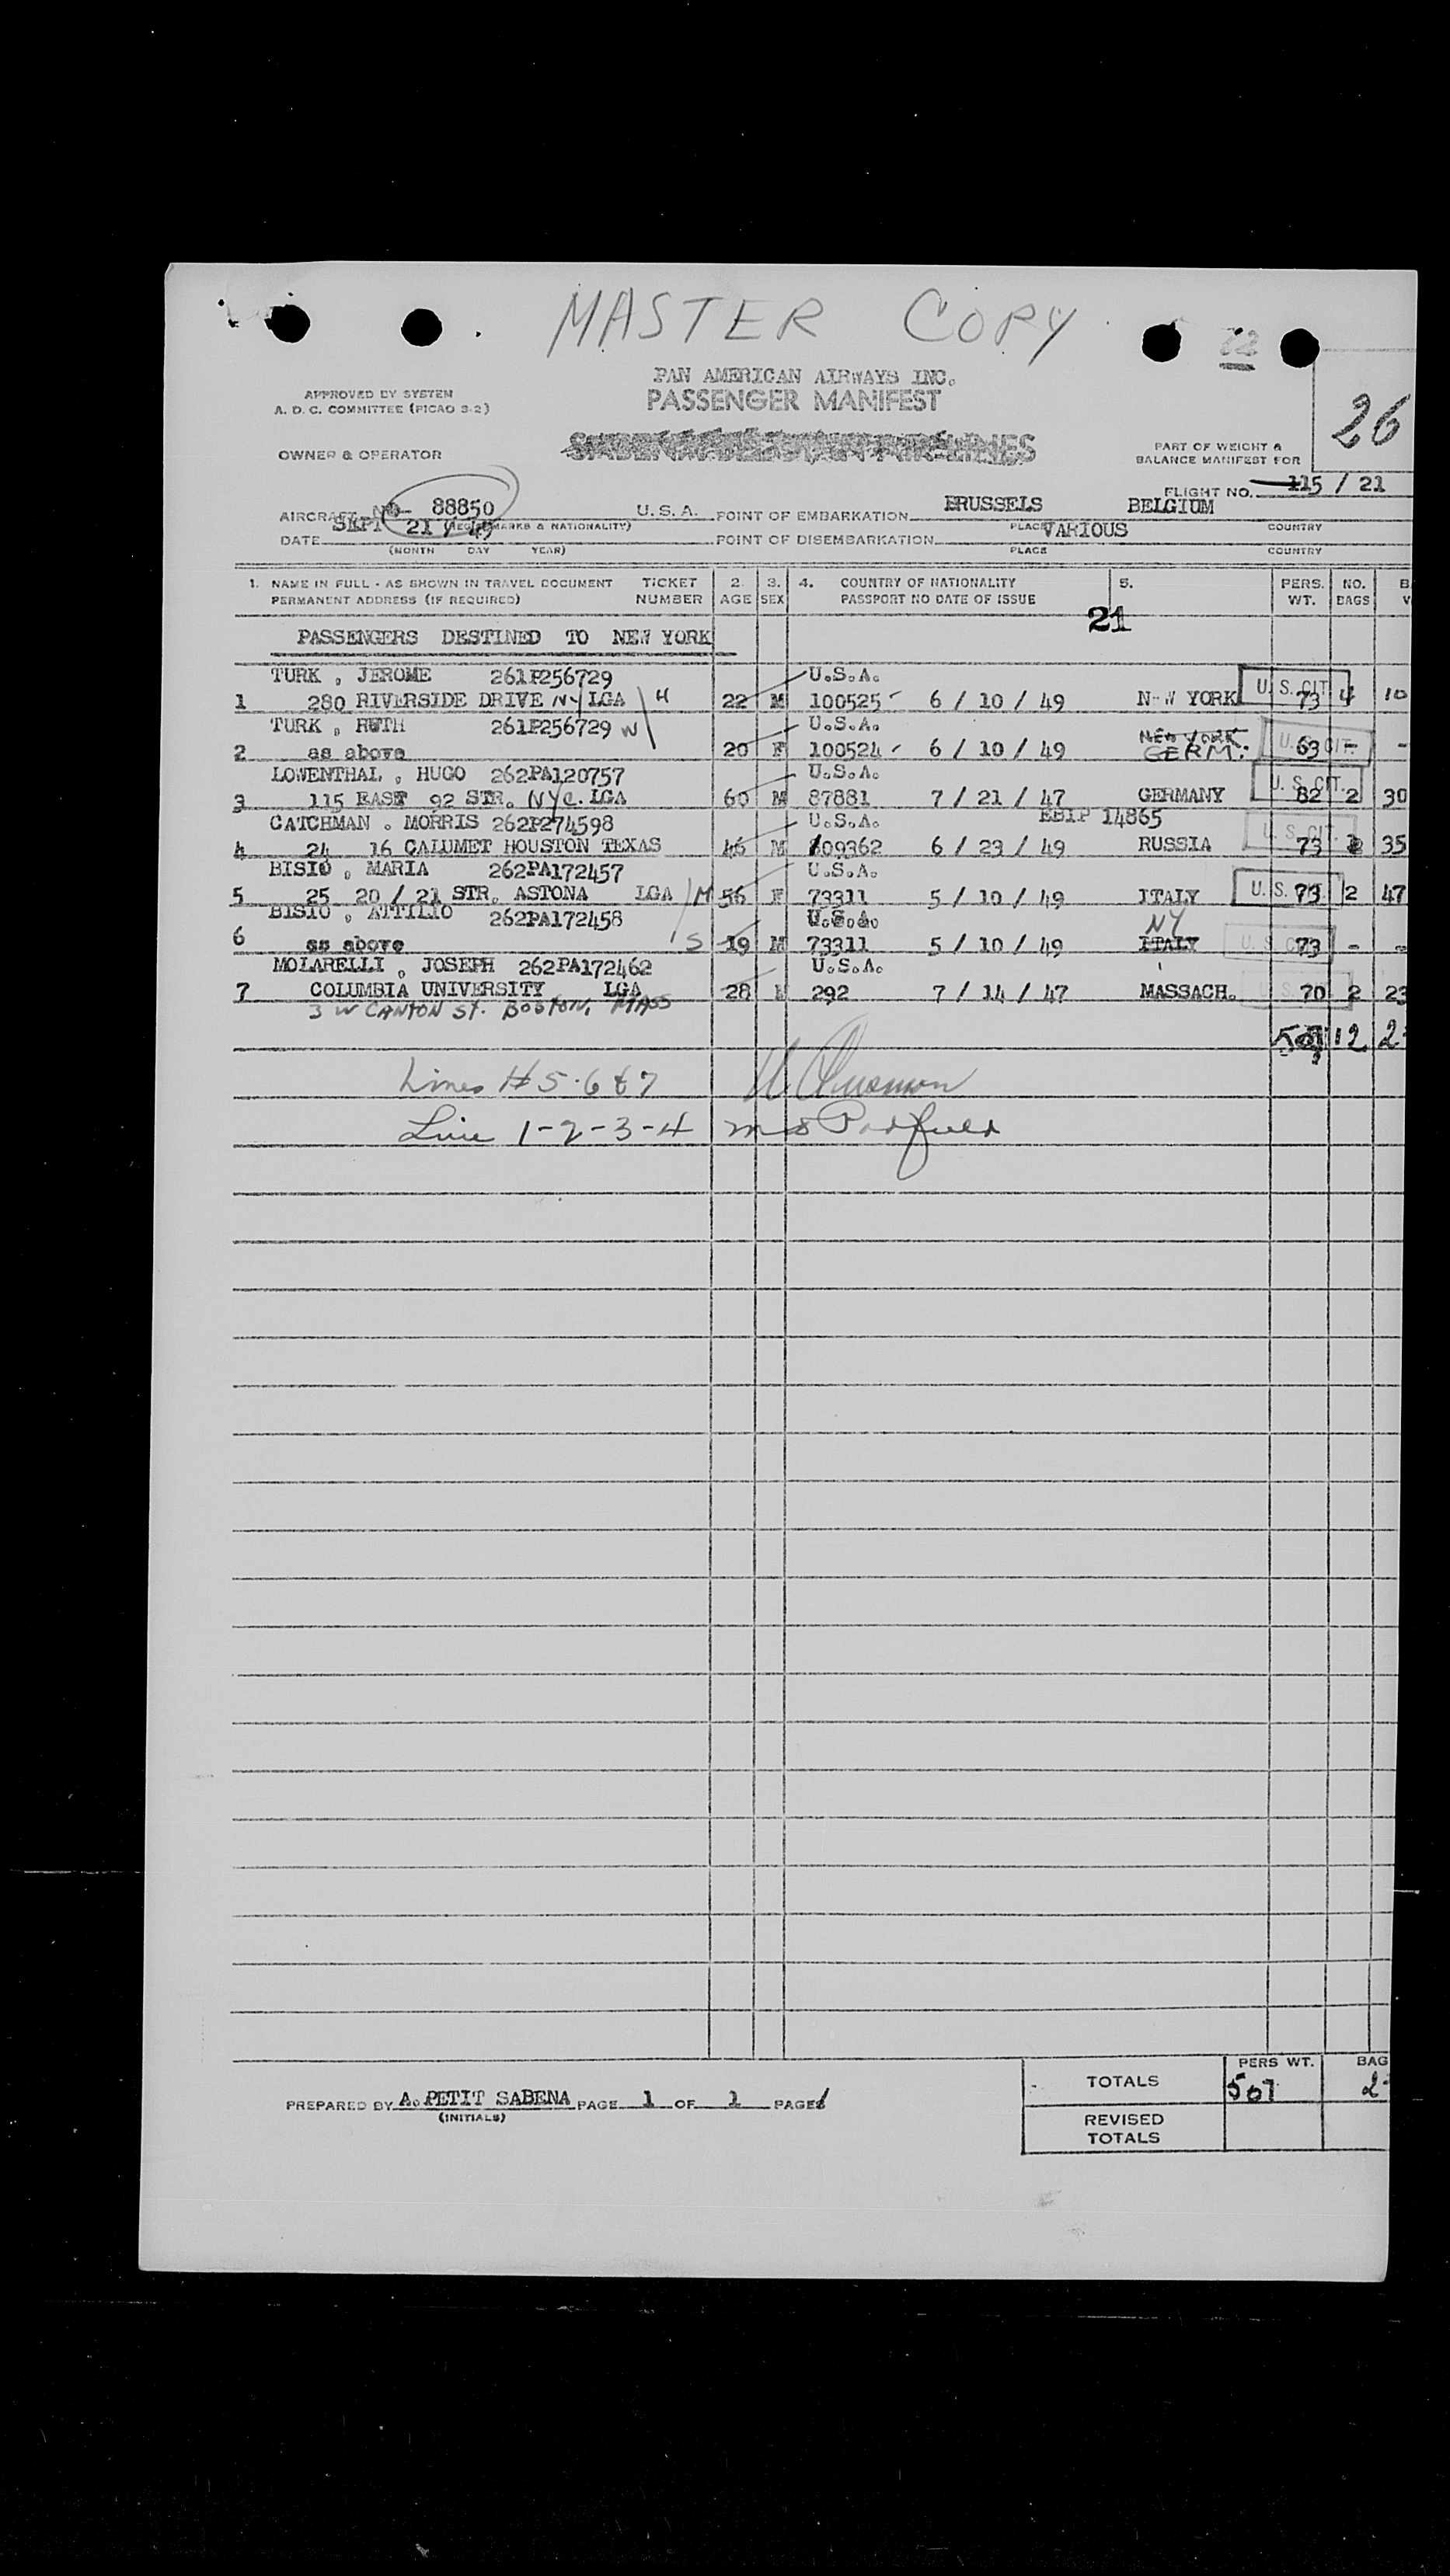 MASTER COPY
PAN AMERICAN AIRWAYS INC.
APPROVED BY SYSTEM
A. D. C. COMMITTEE (PICAO 3-2)
PASSENGER MANIFEST
26
OWNER & OPERATOR
PART OF WEIGHT &
BALANCE MANIFEST FOR
FLIGHT NO. 115 / 21
AIRCRAFT 88850 U. S. A. POINT OF EMBARKATION BRUSSELS BELGIUM
(REG. MARKS & NATIONALITY) PLACE COUNTRY
DATE SEPT 21 / 49 POINT OF DISEMBARKATION VARIOUS
(MONTH DAY YEAR) PLACE COUNTRY
1. NAME IN FULL - AS SHOWN IN TRAVEL DOCUMENT TICKET 2. 3. 4. COUNTRY OF NATIONALITY 5. PERS. NO. B
PERMANENT ADDRESS (IF REQUIRED) NUMBER AGE SEX PASSPORT NO DATE OF ISSUE WT. BAGS
21
PASSENGERS DESTINED TO NEW YORK
TURK , JEROME 261P256729 U.S.A.
1 280 RIVERSIDE DRIVE NY LGA H 22 M 100525 6 / 10 / 49 N-W YORK U. S. CIT. 73 4 10
TURK , RUTH 261P256729 W U.S.A. NEW YORK
2 as above 20 F 100524 6 / 10 / 49 GERM. U. S. CIT. 63 - -
LOWENTHAL , HUGO 262PA120757 U.S.A.
3 115 EAST 92 STR. NYC. LGA 60 M 87881 7 / 21 / 47 GERMANY U. S. CIT. 82 2 30
CATCHMAN . MORRIS 262P274598 U.S.A. EBIP 14865
4 24 16 CALUMET HOUSTON TEXAS 46 M 109362 6 / 23 / 49 RUSSIA U. S. CIT. 73 2 35
BISIO , MARIA 262PA172457 U.S.A.
5 25 20 / 21 STR. ASTONA LGA M 56 F 73311 5 / 10 / 49 ITALY U. S. 73 2 47
BISIO , ATTILIO 262PA172458 U.S.A. NY
6 as above S 19 M 73311 5 / 10 / 49 ITALY U. S. 73 - -
MOLARELLI , JOSEPH 262PA172462 U.S.A.
7 COLUMBIA UNIVERSITY LGA 28 292 7 / 14 / 47 MASSACH. U. S. 70 2 23
3 W CANTON ST. BOSTON, MASS
507 12 2
Lines # 5-6 & 7
Line 1-2-3-4
PERS WT. BAG
TOTALS 507 2
PREPARED BY A. PETIT SABENA PAGE 1 OF 1 PAGES
(INITIALS)
REVISED
TOTALS